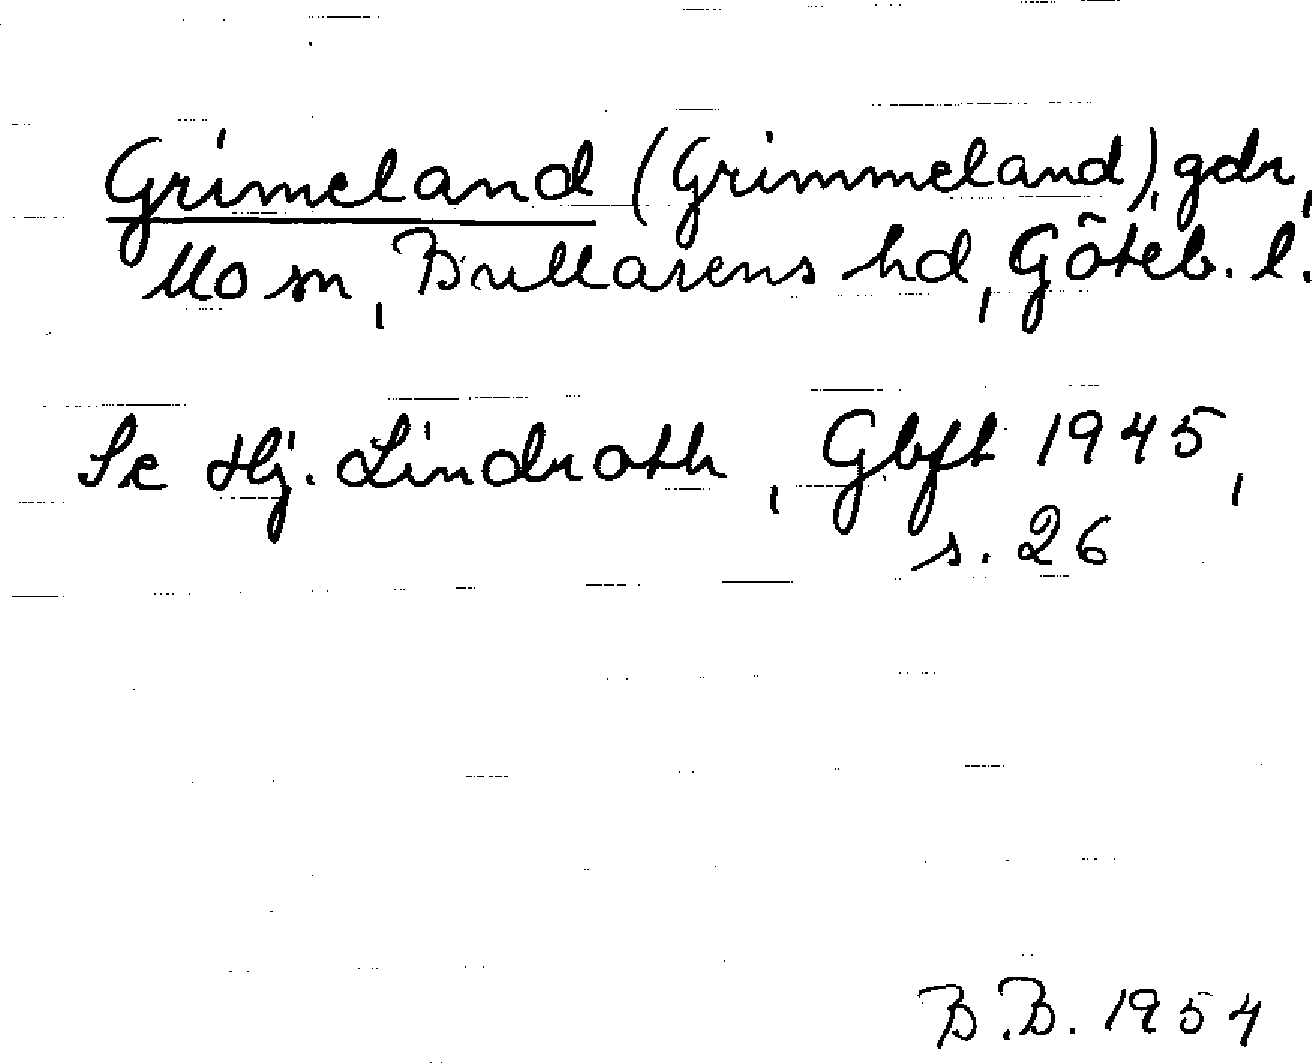 Grimeland (Grimmeland), gdr,
Mo sn, Bullarens hd, Göteb. l.
Se Hj. Lindroth, Gbft 1945,
s. 26
B.B. 1954